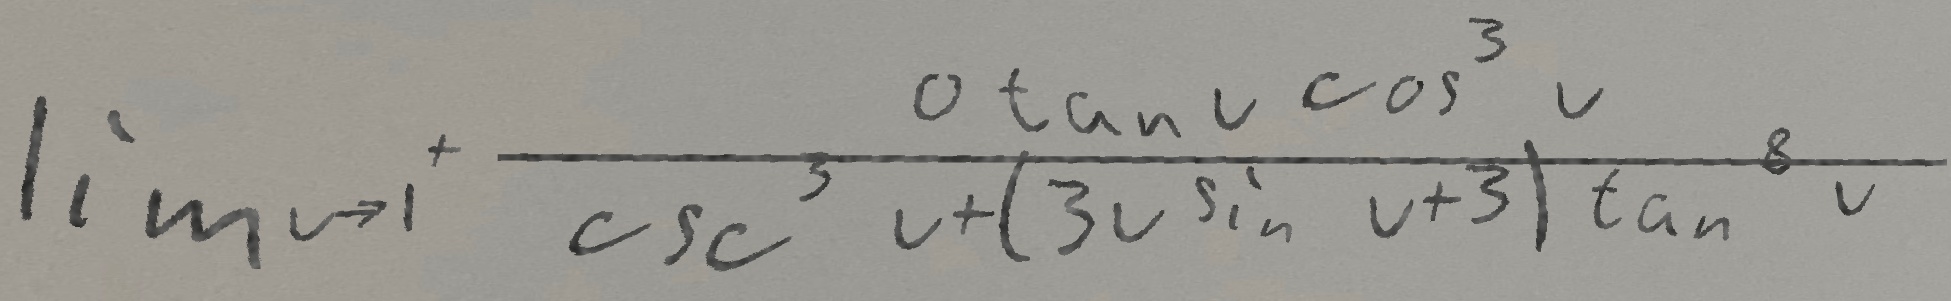 \lim_{v \to 1^+} \frac{0 \tan v \cos^3 v}{\csc^3 v + (3v \sin v + 3) \tan^8 v}